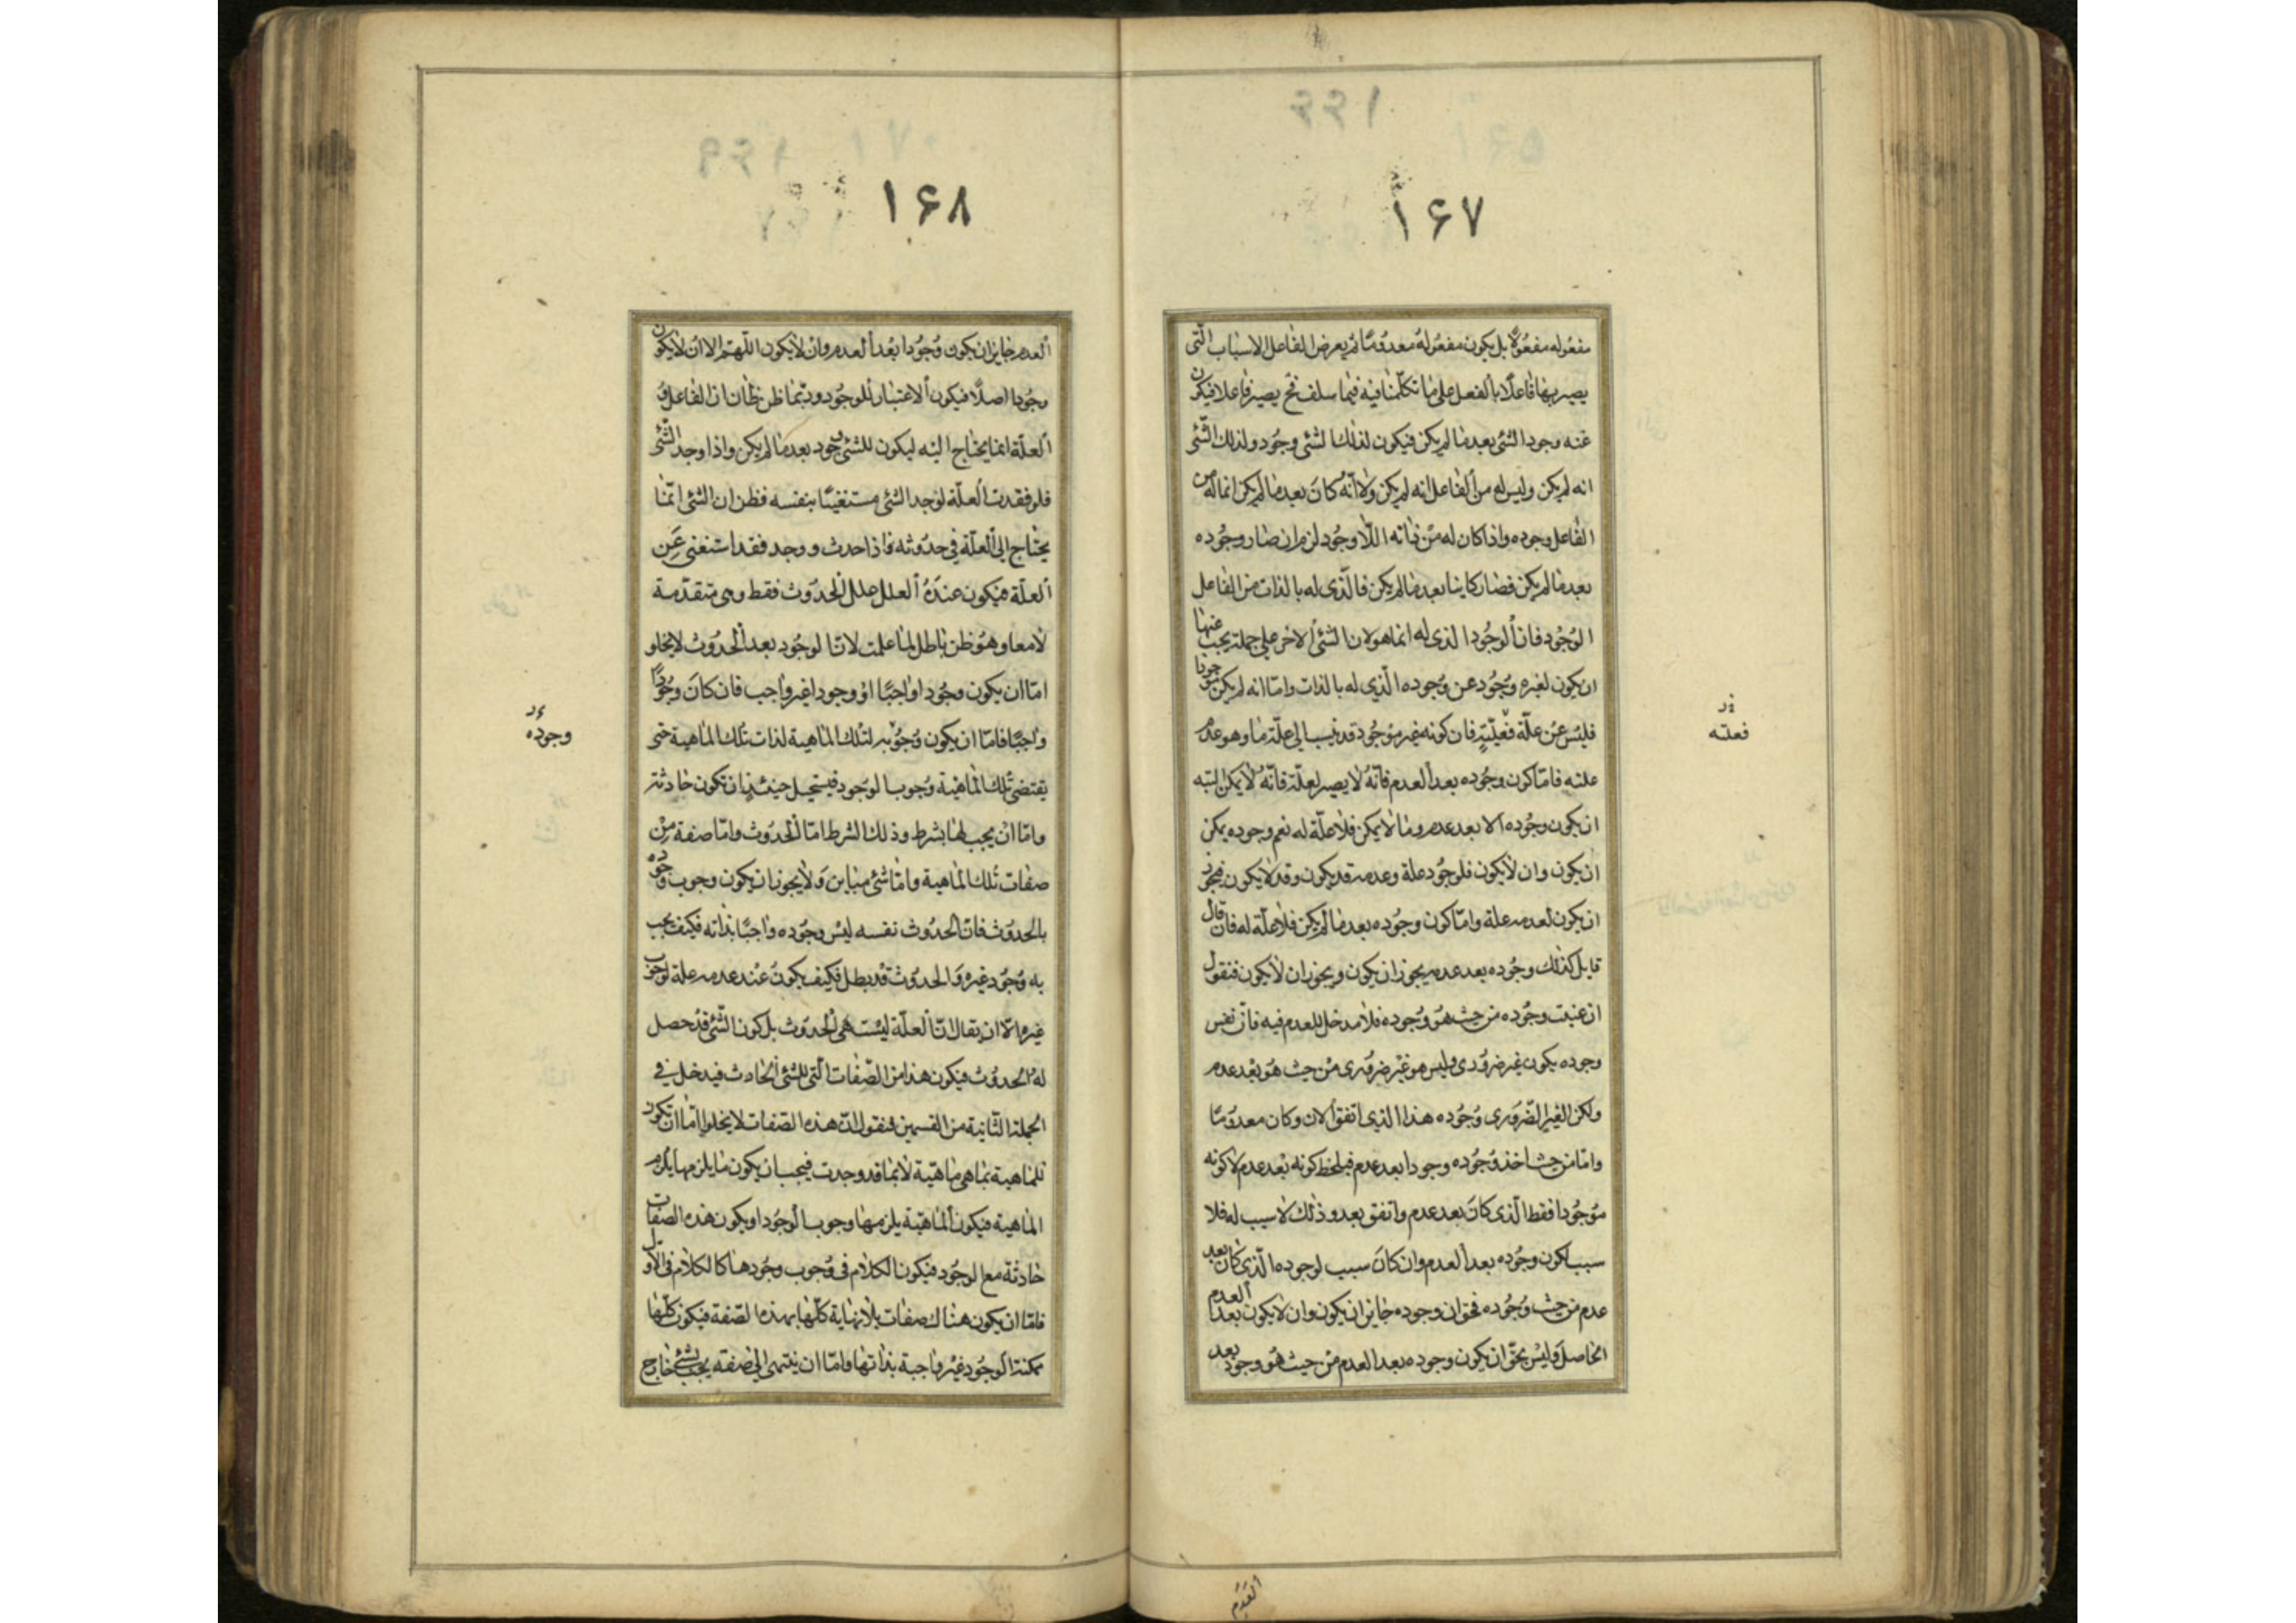 ۱۶۷
مفعوله مفعولا بل يكون مفعوله معدوما ثم يعرض للفاعل الاسباب التى
يصير بها فاعلا بالفعل على ما تكلمنا فيه فيما سلف فح يصير فاعلا فيكون
عنه وجود الشئ بعد ما لم يكن فيكون لذلك الشئ وجود ولذلك الشئ
انه لم يكن وليس له من الفاعل انه لم يكن ولا انه كان بعد ما لم يكن انما له من
الفاعل وجوده واذا كان له من ذاته اللا وجود لزم ان صار وجوده
بعد ما لم يكن فصار كاينا بعد ما لم يكن فالذى له بالذات من الفاعل
الوجود فان الوجود الذى له انما هو لان الشئ الاخر على جملة يجب عنها
ان يكون لغيره وجود عن وجوده الذى له بالذات واما انه لم يكن موجودا
فليس عن علة فعلته فان كونه غير موجود قد ينسب الى علة ما وهو عدم
علته فاما كون وجوده بعد العدم فانه لا يصير لعلة فانه لا يمكن البته
ان يكون وجوده الا بعد عدم وما لا يمكن فلا علة له نعم وجوده يمكن
ان يكون وان لا يكون فلوجوده علة وعدمه قد يكون وقد لا يكون فيجوز
ان يكون لعدمه علة واما كون وجوده بعد ما لم يكن فلا علة له فان قال
قايل كذلك وجوده بعد عدمه يجوز ان يكون ويجوز ان لا يكون فنقول
ان عنيت وجوده من حيث هو وجوده فلا مدخل للعدم فيه فان نفس
وجوده يكون غير ضرورى وليس هو غير ضرورى من حيث هو بعد عدم
ولكن الغير الضرورى وجوده هذا الذى اتفق الان وكان معدوما
واما من حيث اخذ وجوده وجودا بعد عدم فيلحظ كونه بعد عدم لا كونه
موجودا فقط الذى كان بعد عدم واتفق بعد وذلك لا سبب له فلا
سبب لكون وجوده بعد العدم وان كان سبب لوجوده الذى كان بعد
عدم من حيث وجوده فحق ان وجوده جايز ان يكون وان لا يكون بعد العدم
الحاصل وليس بحق ان يكون وجوده بعد العدم من حيث هو وجود بعد
فعلته
العدم
۱۶۸
العدم جايز ان يكون وجودا بعد العدم وان لا يكون اللهم الا ان لا يكون
وجودا اصلا فيكون الاعتبار للوجود وربما ظن ظان ان الفاعل و
العلة انما يحتاج اليه ليكون للشئ وجود بعد ما لم يكن واذا وجد الشئ
فلو فقدت العلة لوجد الشئ مستغنيا بنفسه فظن ان الشئ انما
يحتاج الى العلة فى حدوثه فاذا حدث ووجد فقد استغنى عن
العلة فيكون عنده العلل علل الحدوث فقط وهى متقدمة
لا معا وهو ظن باطل لما علمت لان الوجود بعد الحدوث لا يخلو
اما ان يكون وجودا واجبا او وجودا غير واجب فان كان وجودا
واجبا فاما ان يكون وجوبه لتلك الماهية لذات تلك الماهية حتى
يقتضى تلك الماهية وجوب الوجود فيستحيل حينئذ ان تكون حادثة
واما ان يجب لها بشرط وذلك الشرط اما الحدوث واما صفة من
صفات تلك الماهية واما شئ مباين ولا يجوز ان يكون وجوب وجوده
بالحدوث فان الحدوث نفسه ليس وجوده واجبا بذاته فكيف يجب
به وجود غيره والحدوث قد بطل فكيف يكون عند عدمه علة لوجوب
غيره الا ان يقال ان العلة ليست هى الحدوث بل كون الشئ قد حصل
له الحدوث فيكون هذا من الصفات التى للشئ الحادث فيدخل فى
الجملة الثانية من القسمين فنقول ان هذه الصفات لا يخلو اما ان تكون
للماهية بما هى ماهية لا بما قد وجدت فيجب ان يكون ما يلزمها يلزم
الماهية فيكون الماهية يلزمها وجوب الوجود او يكون هذه الصفات
حادثة مع الوجود فيكون الكلام فى وجوب وجودها كالكلام فى الاول
فاما ان يكون هناك صفات بلا نهاية كلها بهذه الصفة فيكون كلها
ممكنة الوجود غير واجبة بذاتها واما ان ينتهى الى صفة يجب لشئ خارج
وجوده